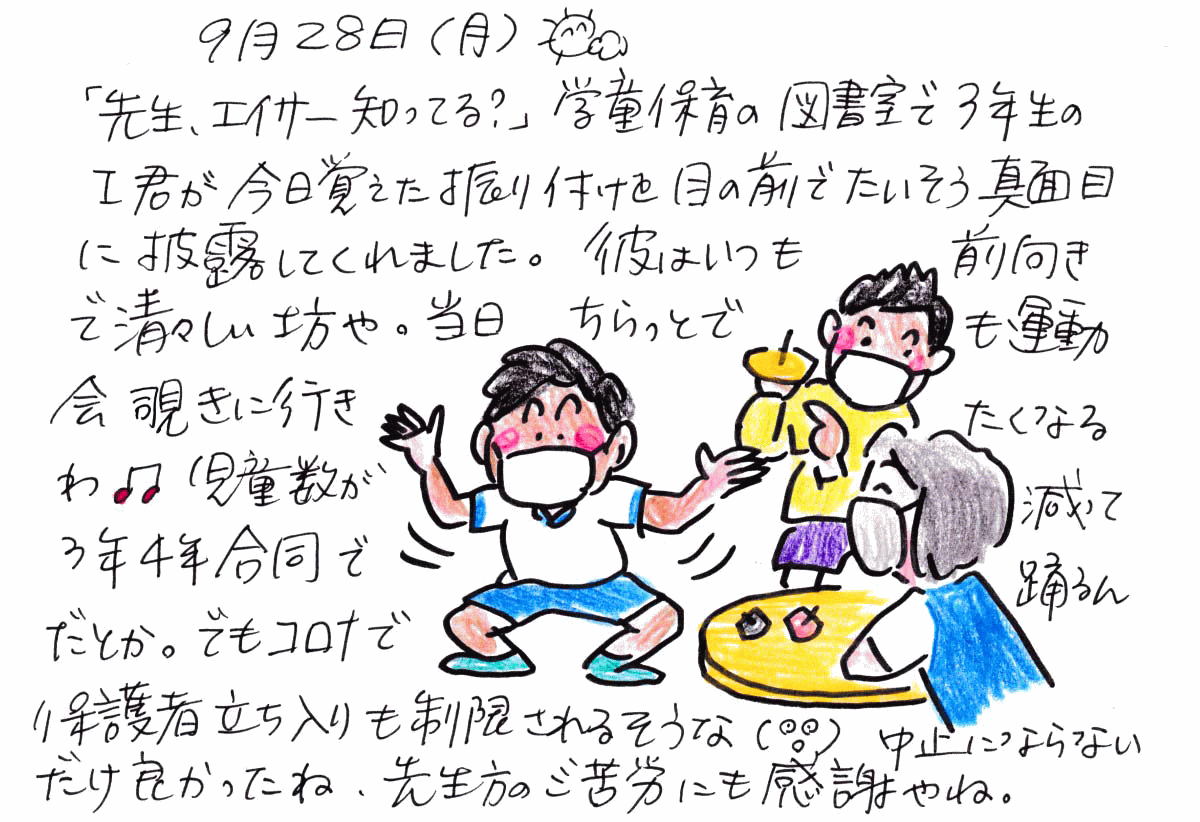 9月28日(月)
「先生、エイサー知ってる?」学童保育の図書室で3年生の
I君が今日覚えた振り付けを目の前でたいそう真面目
に披露してくれました。彼はいつも前向き
で清々しい坊や。当日ちらっとでも運動
会覗きに行きたくなる
わ♫児童数が減って
3年4年合同で踊るん
だとか。でもコロナで
保護者立ち入りも制限されるそうな( )中止にならない
だけ良かったね、先生方のご苦労にも感謝やね。